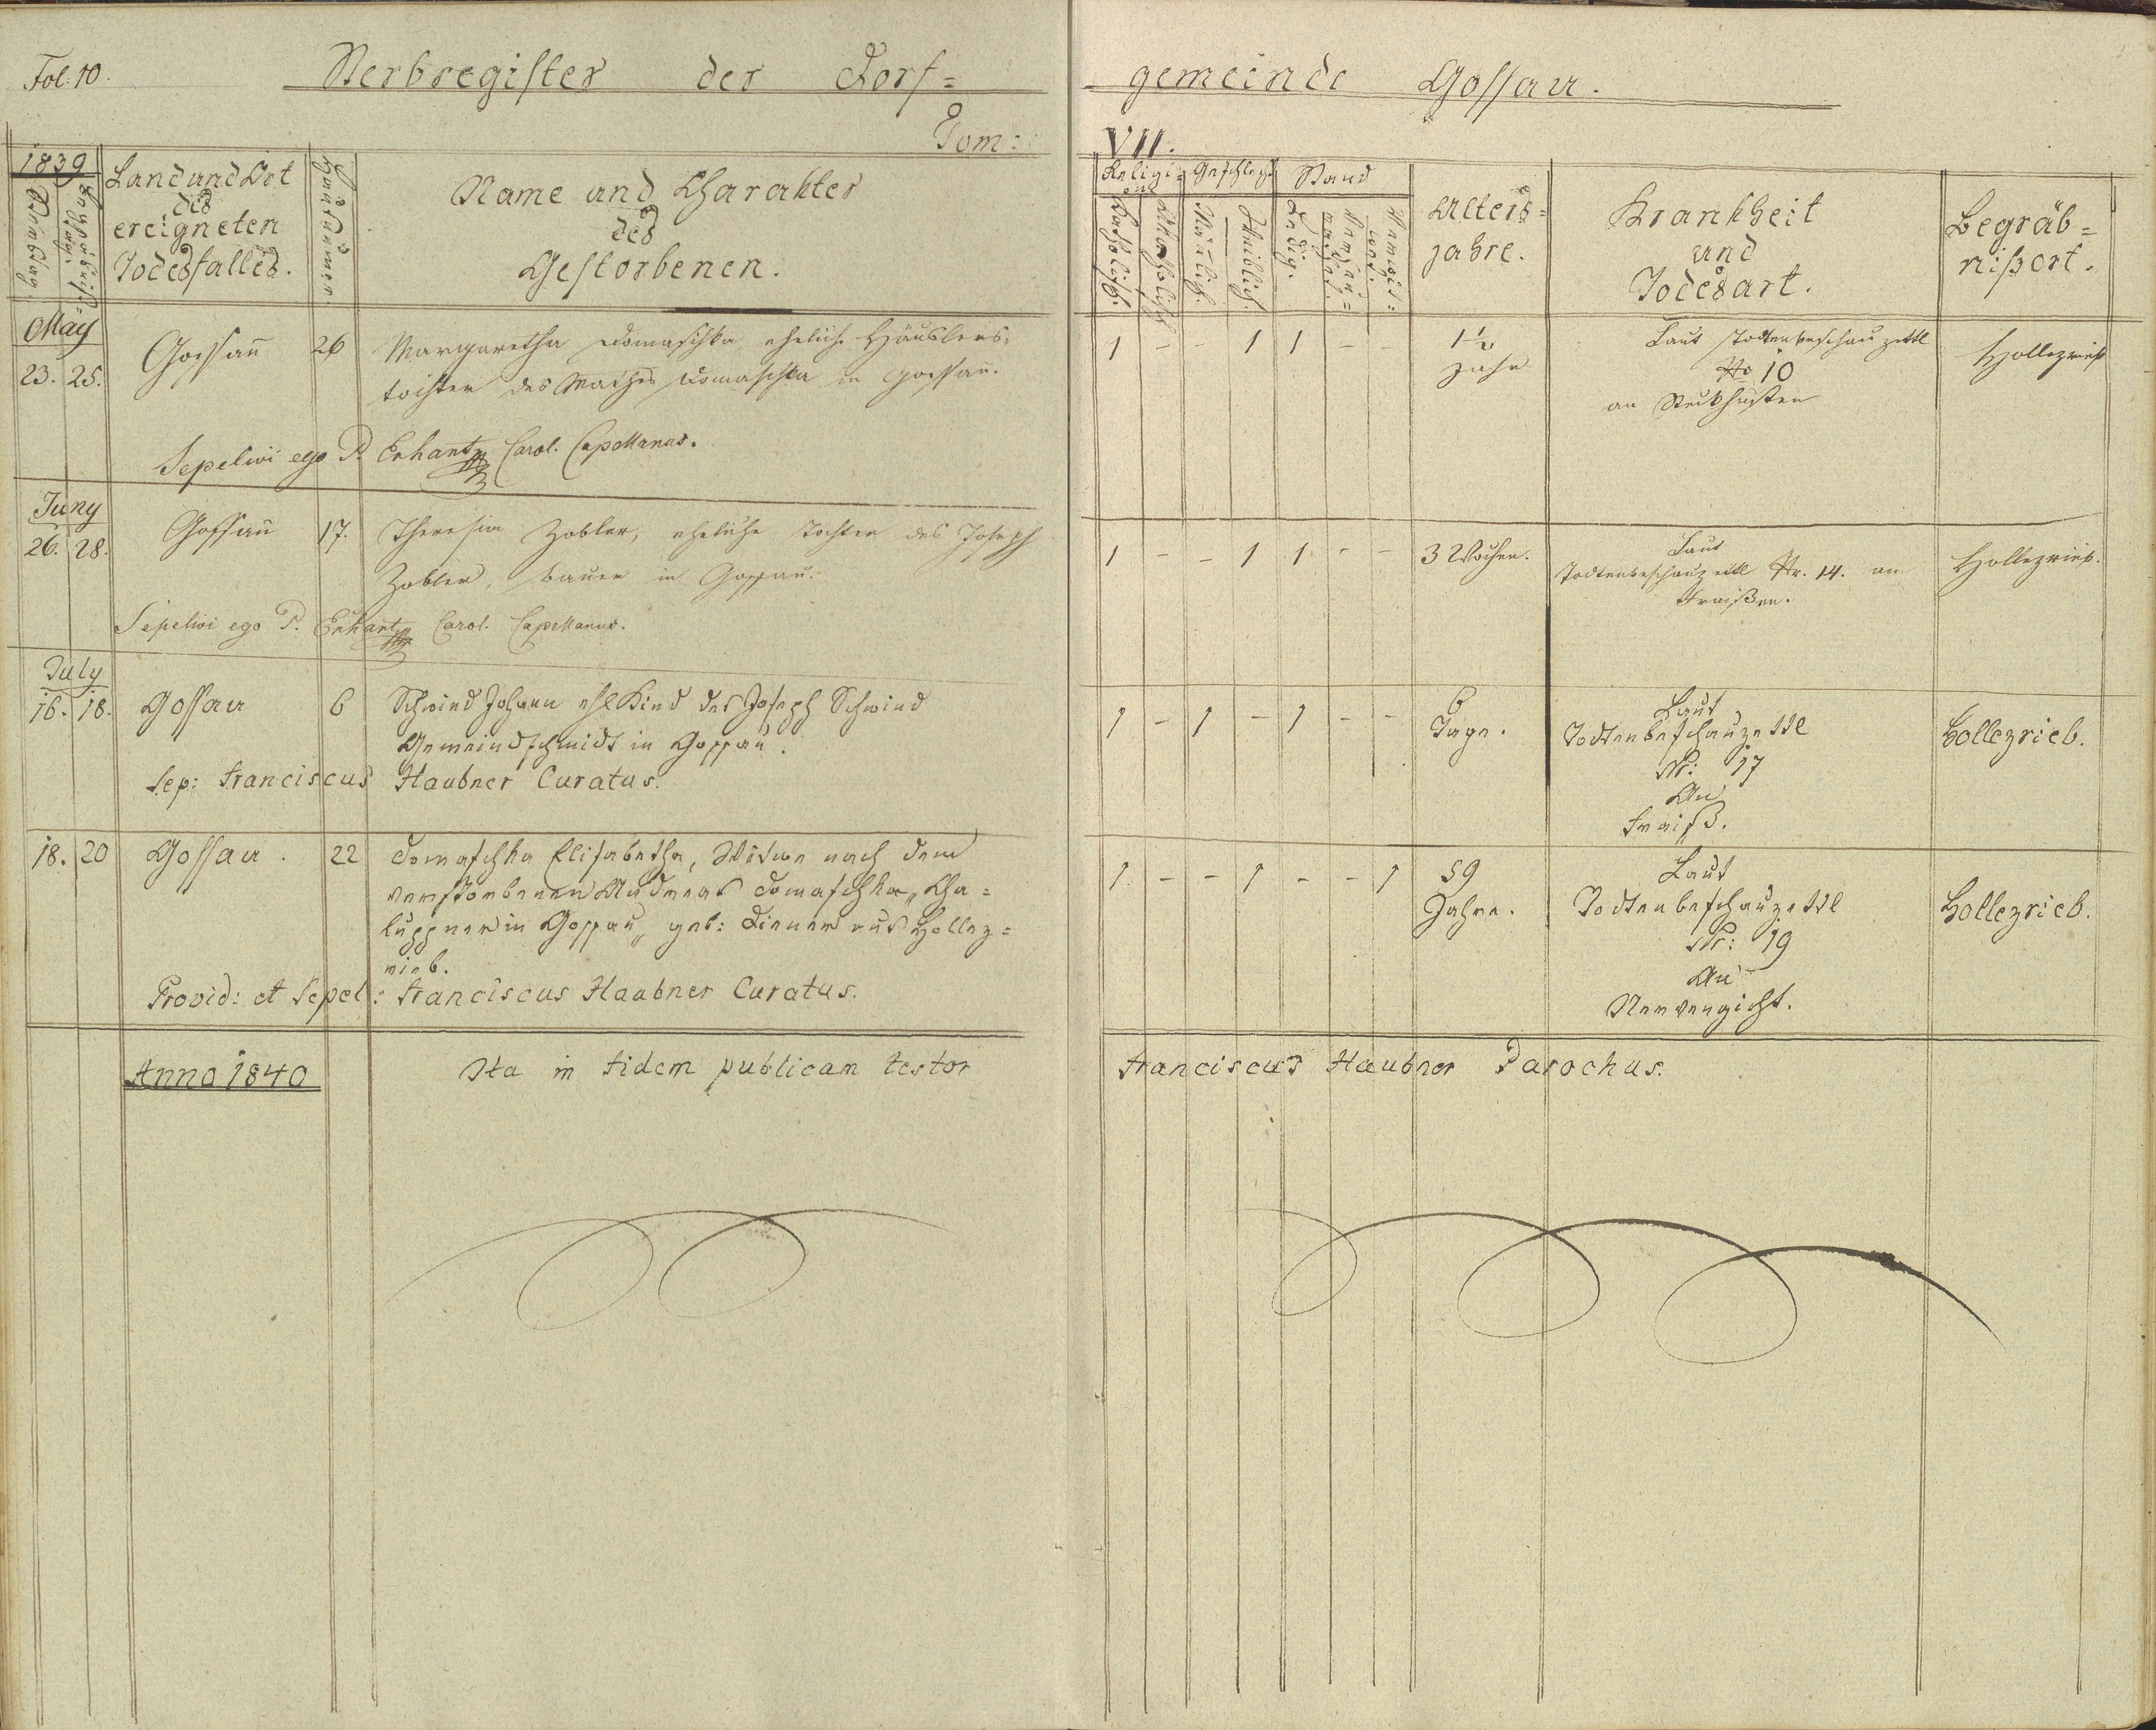 Fol: 10. Sterbregister der Dorf=
gemeinde Gossau.
Tom: VII.
1839
Sterbtag
Begräbniß=
tag.
Land und Ort
des
ereigneten
Todesfalles.
Hausnumer
Name und Charakter
des
Gestorbenen.
Religi=
on
Katholisch.
Akatholisch
Geschlecht
Mänlich.
Weiblich.
Stand
Ledig.
Verheu=
rathet.
Verwit=
wet.
Alters=
jahre.
Krankheit
und
Todesart.
Begräb=
nißort.
May
23. 25. Gossau 26 Margaretha Domaschka eheliche Häuslers-
tochter des Mathes Domaschka in Gossau.
Sepelivi ego P. Erhart Carol. Capellanus.
1 - - 1 1 - - 1½
Jahr
Laut Todtenbeschauzettl
No 10
an Steckhusten
Hollezrieb
Juny
26. 28. Gossau 17. Theresia Zobler, eheliche Tochter des Joseph
Zobler, Bauer in Gossau.
Sepelivi ego P. Erhart Carol. Capellanus.
1 - - 1 1 - - 3 Wochen.
Laut
Todtenbeschauzettl Nr. 14. an
Fraißen.
Hollezrieb.
July
16. 18. Gossau 6 Schwind Johann ehl Kind des Joseph Schwind
Gemeindschmidt in Gossau.
Sep: Franciscus Haubner Curatus.
1 - 1 - 1 - - 6
Tage.
Laut
Todtenbeschauzettl
Nr: 17
An
Fraiß.
Hollezrieb.
18. 20 Gossau. 22 Domaschka Elisabetha, Witwe nach dem
verstorbenen Andreas Domaschka, Cha=
luppner in Gossau, geb: Diener aus Hollez=
rieb.
Provid: et Sepel: Franciscus Haubner Curatus.
1 - - 1 - - 1 59
Jahre.
Laut
Todtenbeschauzettl
Nr: 19
An
Nervengicht.
Hollezrieb.
Anno 1840 Ita in fidem publicam testor Franciscus Haubner Parochus.